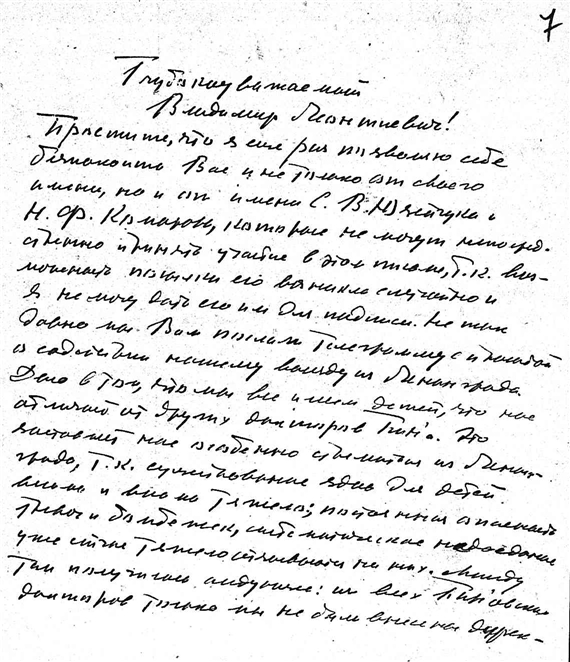 7
Глубокоуважаемый
Владимир Леонтиевич!
Простите, что я еще раз позволяю себе
беспокоить Вас и не только от своего
имени, но и от имени С. В. и
Н. Ф. Комарова, которые не могут непосред-
ственно принять участие в этом письме, т.к. воз-
можность посылки его возникла случайно и
я не могу дать его им для подписи. Не так
давно мы Вам послали телеграмму с просьбой
о содействии нашему выезду из Ленинграда.
Дело в том, что мы все имеем детей, что нас
отличает от других докторов. Это
заставляет нас особенно стремиться из Ленин-
града, т.к. существование здесь для детей
весьма и весьма тяжело; постоянная опасность
и бомбежек, систематическое недоедание
уже стали тяжело отзываться на них. Между
тем получилось следующее: из всех
докторов только мы не были дирек-